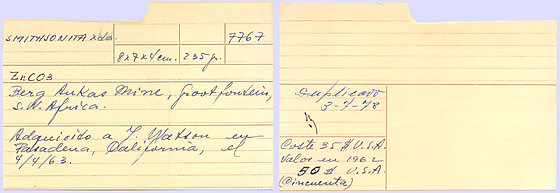 SMITHSONITA xda.
7767
8x7x4 cm. 235 gr.
ZnCO3
Berg Aukas Mine, Grootfontein,
S.W. Africa.
Adquirido a J. Watson en
Pasadena, California, el
4/4/63.
duplicado
3-7-78
Costo 35 $ U.S.A.
Valor en 1962
50 $ U.S.A.
(Cincuenta)